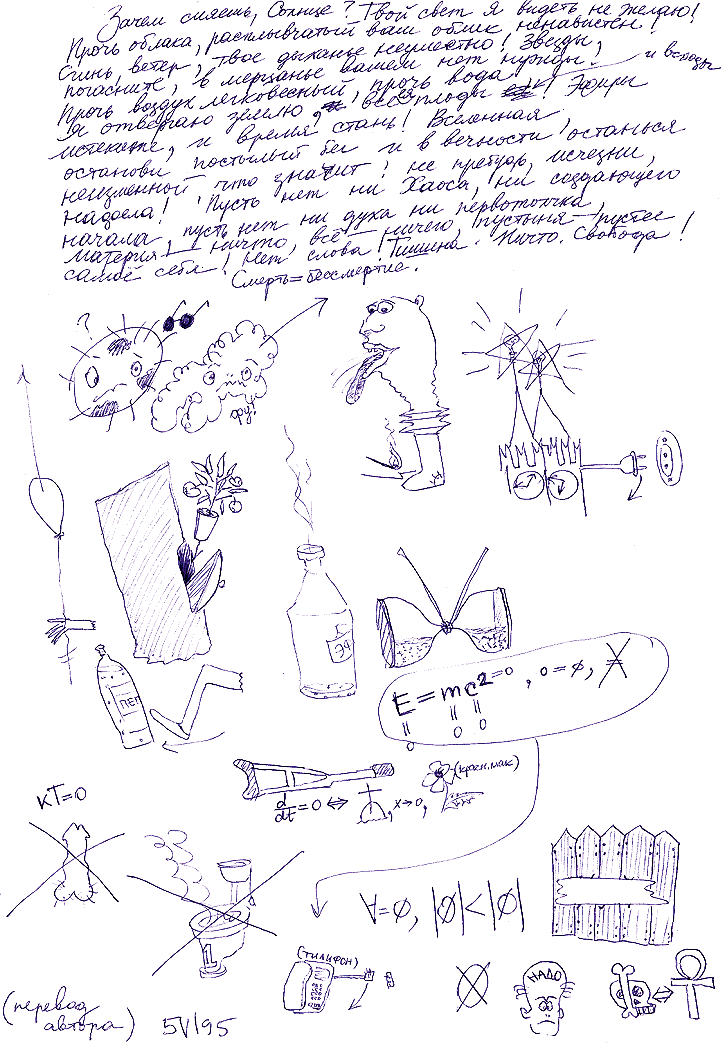 Зачем сияешь, Солнце? Твой свет я видеть не желаю!
Прочь облака, расплывчатый ваш облик ненавистен!
Сгинь, ветер, твоё дыханье неуместно! Звёзды,
погасните, в мерцанье вашем нет нужды!
Прочь воздух легковесный, прочь вода и всходы
Я отвергаю землю, все плоды! Эфиры
истеките, и время стань! Вселенная
останови постылый бег и в вечности останься
неизменной что значит: не пребудь, исчезни,
надоела! Пусть нет ни Хаоса, ни создающего
начала, пусть нет ни духа ни первотолчка,
материя — ничто, всё — ничего, пустыня — пустее
самоё себя! Нет слова! Тишина. Ничто. Свобода!
Смерть=бессмертие.
?
фу!
ЭФ
ПЕП
E=mc²=0, 0=∅, X
0 0 0
(красн. мак)
d/dt=0 ⇔ , x→0,
кT=0
1
∀=∅, |∅|<|∅|
(ТИЛИФОН)
НАДО
⇔
(перевод
автора) 5V95